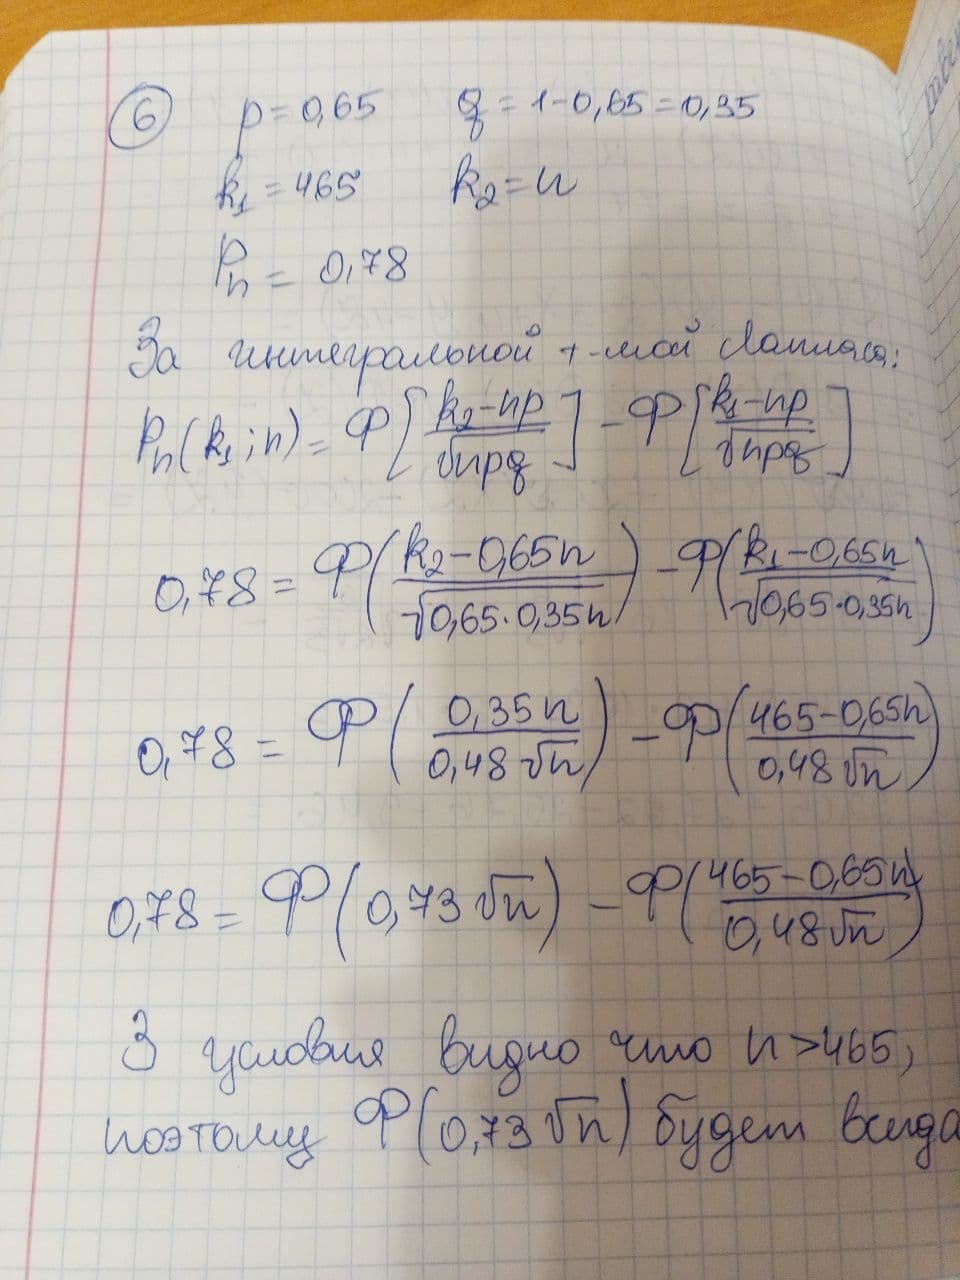 6 p = 0,65 q = 1 - 0,65 = 0,35
k₁ = 465 k₂ = n
Pₙ = 0,78
За интегральной т-мой Лапласа:
Pₙ(k₁; n) = Ф[(k₂-np)/√npq] - Ф[(k₁-np)/√npq]
0,78 = Ф((k₂-0,65n)/√0,65·0,35n) - Ф((k₁-0,65n)/√0,65·0,35n)
0,78 = Ф(0,35n/0,48√n) - Ф((465-0,65n)/0,48√n)
0,78 = Ф(0,73√n) - Ф((465-0,65n)/0,48√n)
З условия видно что n>465,
поэтому Ф(0,73√n) будет всегда